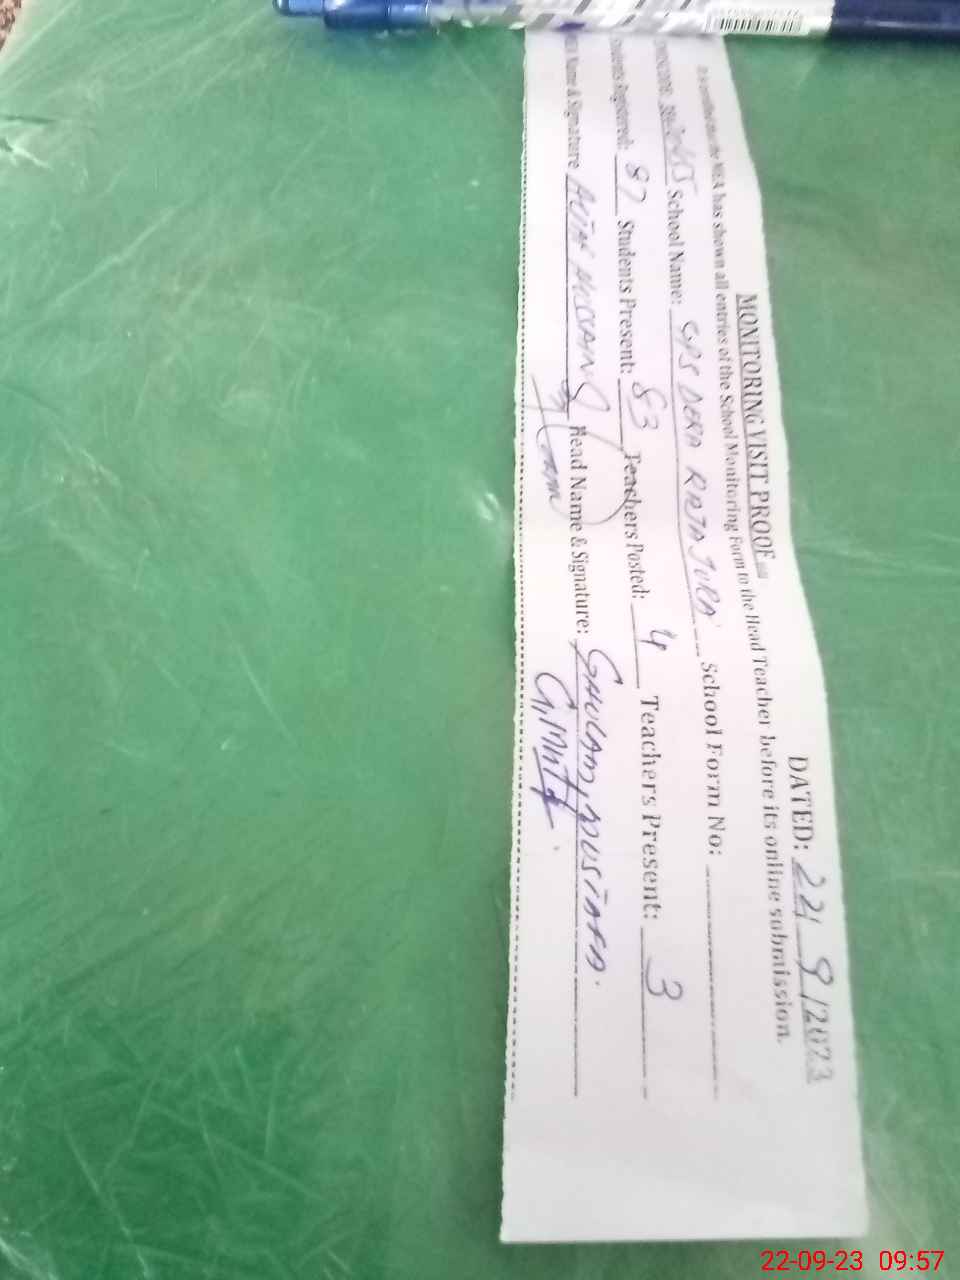 DATED: 22/ 9 /2023
MONITORING VISIT PROOF
It is certified that the MEA has shown all entries of the School Monitoring Form to the Head Teacher before its online submission.
School Name: GPS DERA RAJA JURA School Form No:
Students Registered: 87 Students Present: 83 Teachers Posted: 4 Teachers Present: 3
Name & Signature HUSSAIN Head Name & Signature: GHULAM MUSTAFA.
22-09-23 09:57